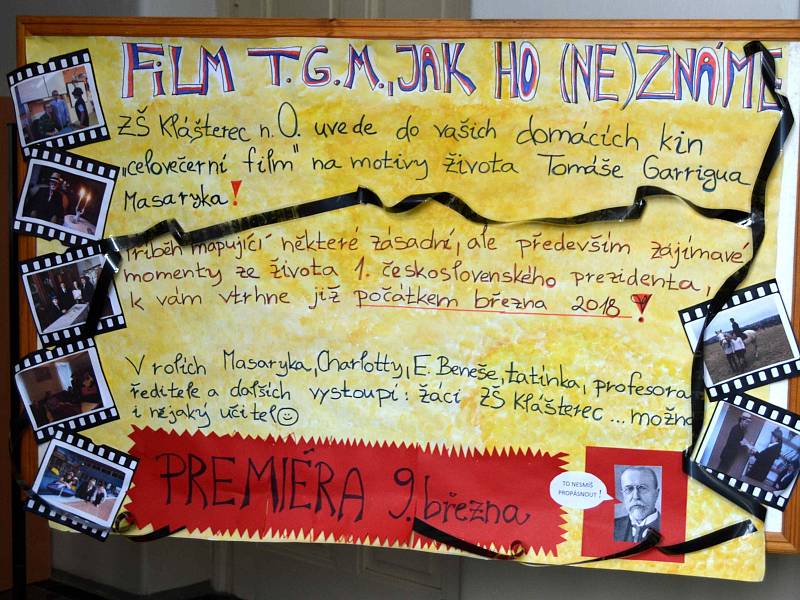 FILM T.G.M., JAK HO (NE)ZNÁME
ZŠ Klášterec n.O. uvede do vašich domácích kin
„celovečerní film" na motivy života Tomáše Garrigua
Masaryka!
Příběh mapující některé zásadní, ale především zajímavé
momenty ze života 1. československého prezidenta,
k vám vtrhne již počátkem března 2018!
V rolích Masaryka, Charlotty, E. Beneše, tatínka, profesora
ředitele a dalších vystoupí: žáci ZŠ Klášterec ... možná
i nějaký učitel☺
PREMIÉRA 9. března
TO NESMÍŠ
PROPÁSNOUT!